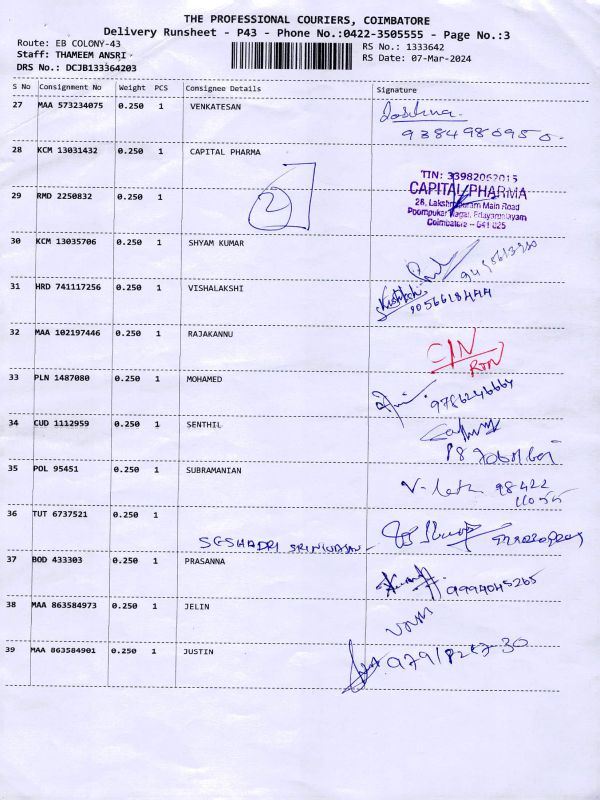 THE PROFESSIONAL COURIERS, COIMBATORE
Delivery Runsheet - P43 - Phone No.:0422-3505555 - Page No.:3
Route: EB COLONY-43
Staff: THAMEEM ANSRI
DRS No.: DCJB133364203
RS No.: 1333642
RS Date: 07-Mar-2024
S No Consignment No Weight PCS Consignee Details Signature
27 MAA 573234075 0.250 1 VENKATESAN
28 KCM 13031432 0.250 1 CAPITAL PHARMA
2
TIN: 33982062015
CAPITAL PHARMA
28, Lakshmipuram Main Road
Poompukar Nagar, Edayarpalayam
Coimbatore - 641 025
29 RMD 2250832 0.250 1
30 KCM 13035706 0.250 1 SHYAM KUMAR
31 HRD 741117256 0.250 1 VISHALAKSHI
9056618444
32 MAA 102197446 0.250 1 RAJAKANNU
RTN
33 PLN 1487080 0.250 1 MOHAMED
9786246664
34 CUD 1112959 0.250 1 SENTHIL
35 POL 95451 0.250 1 SUBRAMANIAN
98422
11055
36 TUT 6737521 0.250 1
SESHADRI SRINIVASAN
37 BOD 433303 0.250 1 PRASANNA
9994045265
38 MAA 863584973 0.250 1 JELIN
39 MAA 863584901 0.250 1 JUSTIN